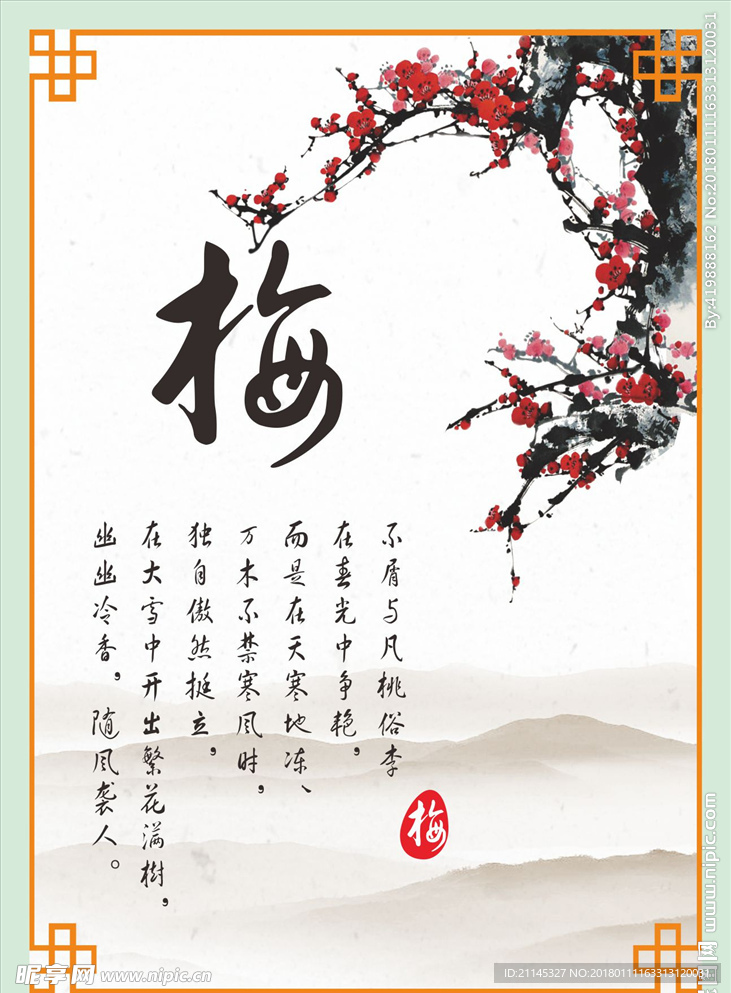 梅
不屑与凡桃俗李
在春光中争艳，
而是在天寒地冻、
万木不禁寒风时，
独自傲然挺立，
在大雪中开出繁花满樹，
幽幽冷香，随风袭人。
梅
By:419888162 No:20180111163313120031
www.nipic.com
昵享网 www.nipic.cn
ID:21145327 NO:20180111163313120031